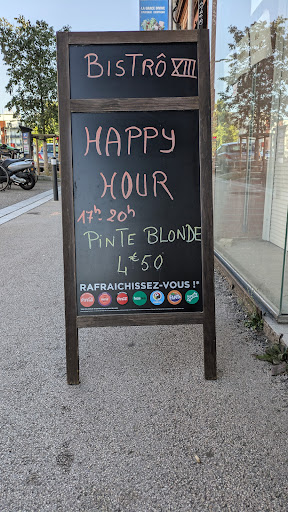 BISTRÔ XIII
HAPPY
HOUR
17h-20h
PINTE BLONDE
4€50
RAFRAICHISSEZ-VOUS !*